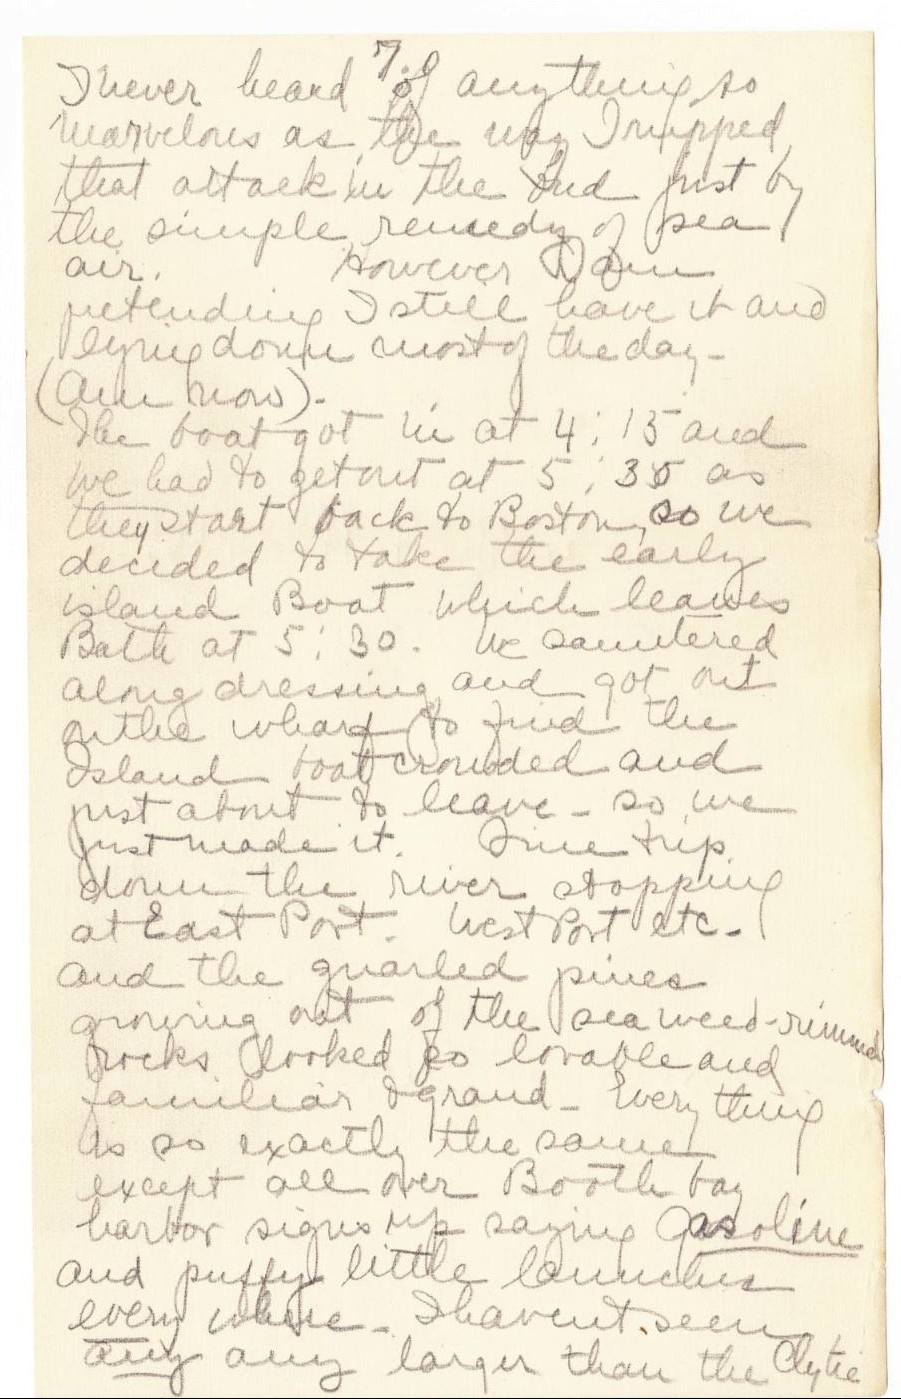 7.
I never heard of anything so
marvelous as the way I nipped
that attack in the bud just by
the simple remedy of sea
air. However I am
pretending I still have it and
lying down most of the day -
(Am now).
The boat got in at 4:15 and
we had to get out at 5:35 as
they start back to Boston, so we
decided to take the early
island Boat which leaves
Bath at 5:30. We sauntered
along dressing and got out
on the wharf to find the
Island boat crowded and
just about to leave - so we
just made it. Fine trip
down the river stopping
at East Port. West Port etc -
and the gnarled pines
growing out of the seaweed-rimmed
rocks looked so lovable and
familiar & grand - Everything
is so exactly the same
except all over Boothbay
harbor signs up saying Gasoline
and puffy little launches
every where - I havent seen
any any larger than the Clytie